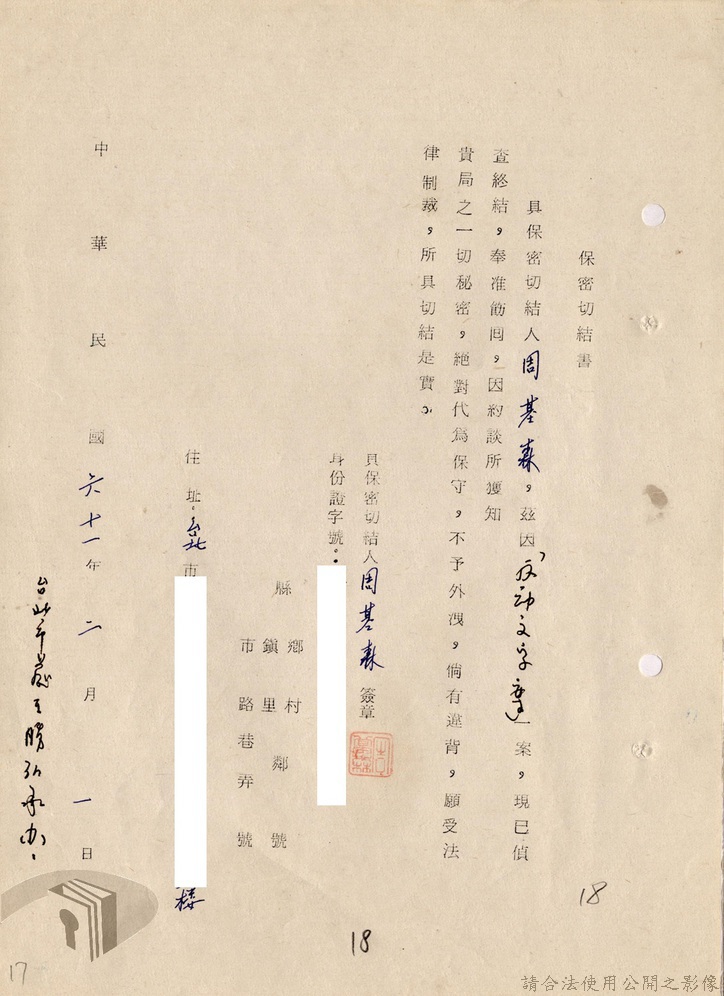 保密切結書
具保密切結人周基森，茲因「反動文字案」一案，現已偵
查終結，奉准飭回，因約談所獲知
貴局之一切秘密，絕對代為保守，不予外洩，倘有違背，願受法
律制裁，所具切結是實。
具保密切結人周基森簽章
身份證字號：
縣 鄉 村 鄰 號
市 鎮 里
路 巷 弄 號
住址：台北市
樓
中華民國六十一年二月一日
台北市
承办
18
18
17
請合法使用公開之影像